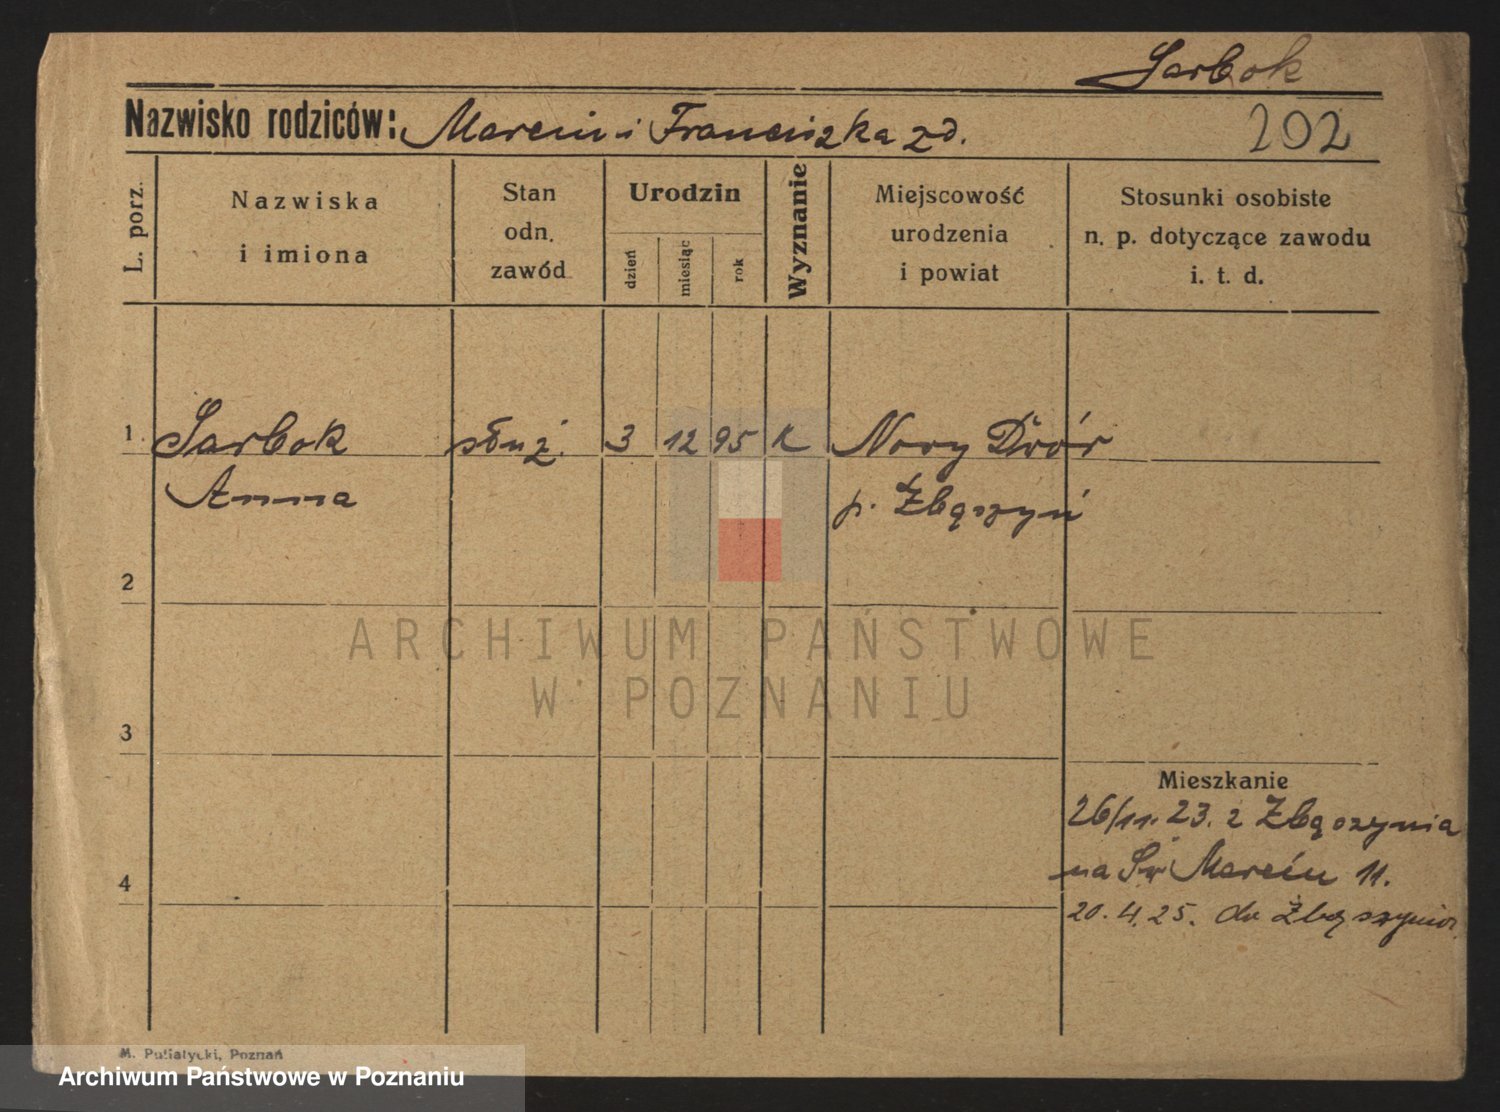 Sarbok
Nazwisko rodziców: Marcin i Franciszka zd.
202
L. porz.
Nazwiska
i imiona
Stan
odn.
zawód
Urodzin
dzień
miesiąc
rok
Wyznanie
Miejscowość
urodzenia
i powiat
Stosunki osobiste
n. p. dotyczące zawodu
i. t. d.
1. Sarbok służ. 3 12 95 k Nowy Dwór
Anna p. Zbąszyń
2
ARCHIWUM PAŃSTWOWE
W POZNANIU
3
Mieszkanie
26/11. 23. z Zbąszynia
4 na Św Marcin 11.
20. 4. 25. do Zbąszynia
M. Putiatycki, Poznań
Archiwum Państwowe w Poznaniu